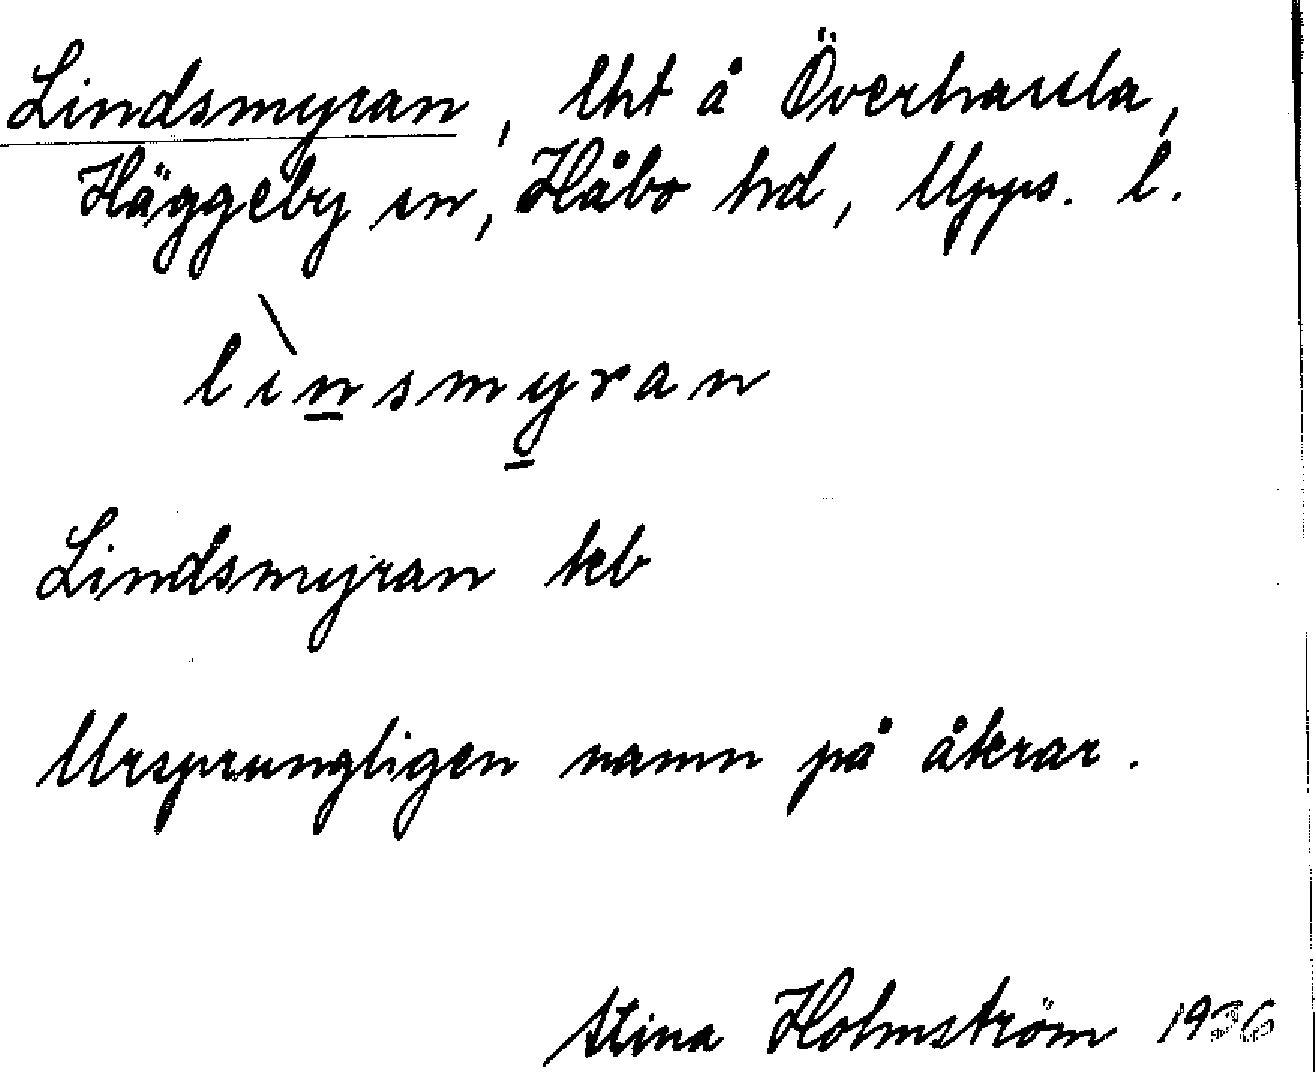 Lindsmyran, lht å Överhassla,
Häggeby sn, Håbo hd, Upps. l.
lìnsmyran
Lindsmyran kb
Ursprungligen namn på åkrar.
Stina Holmström 1936